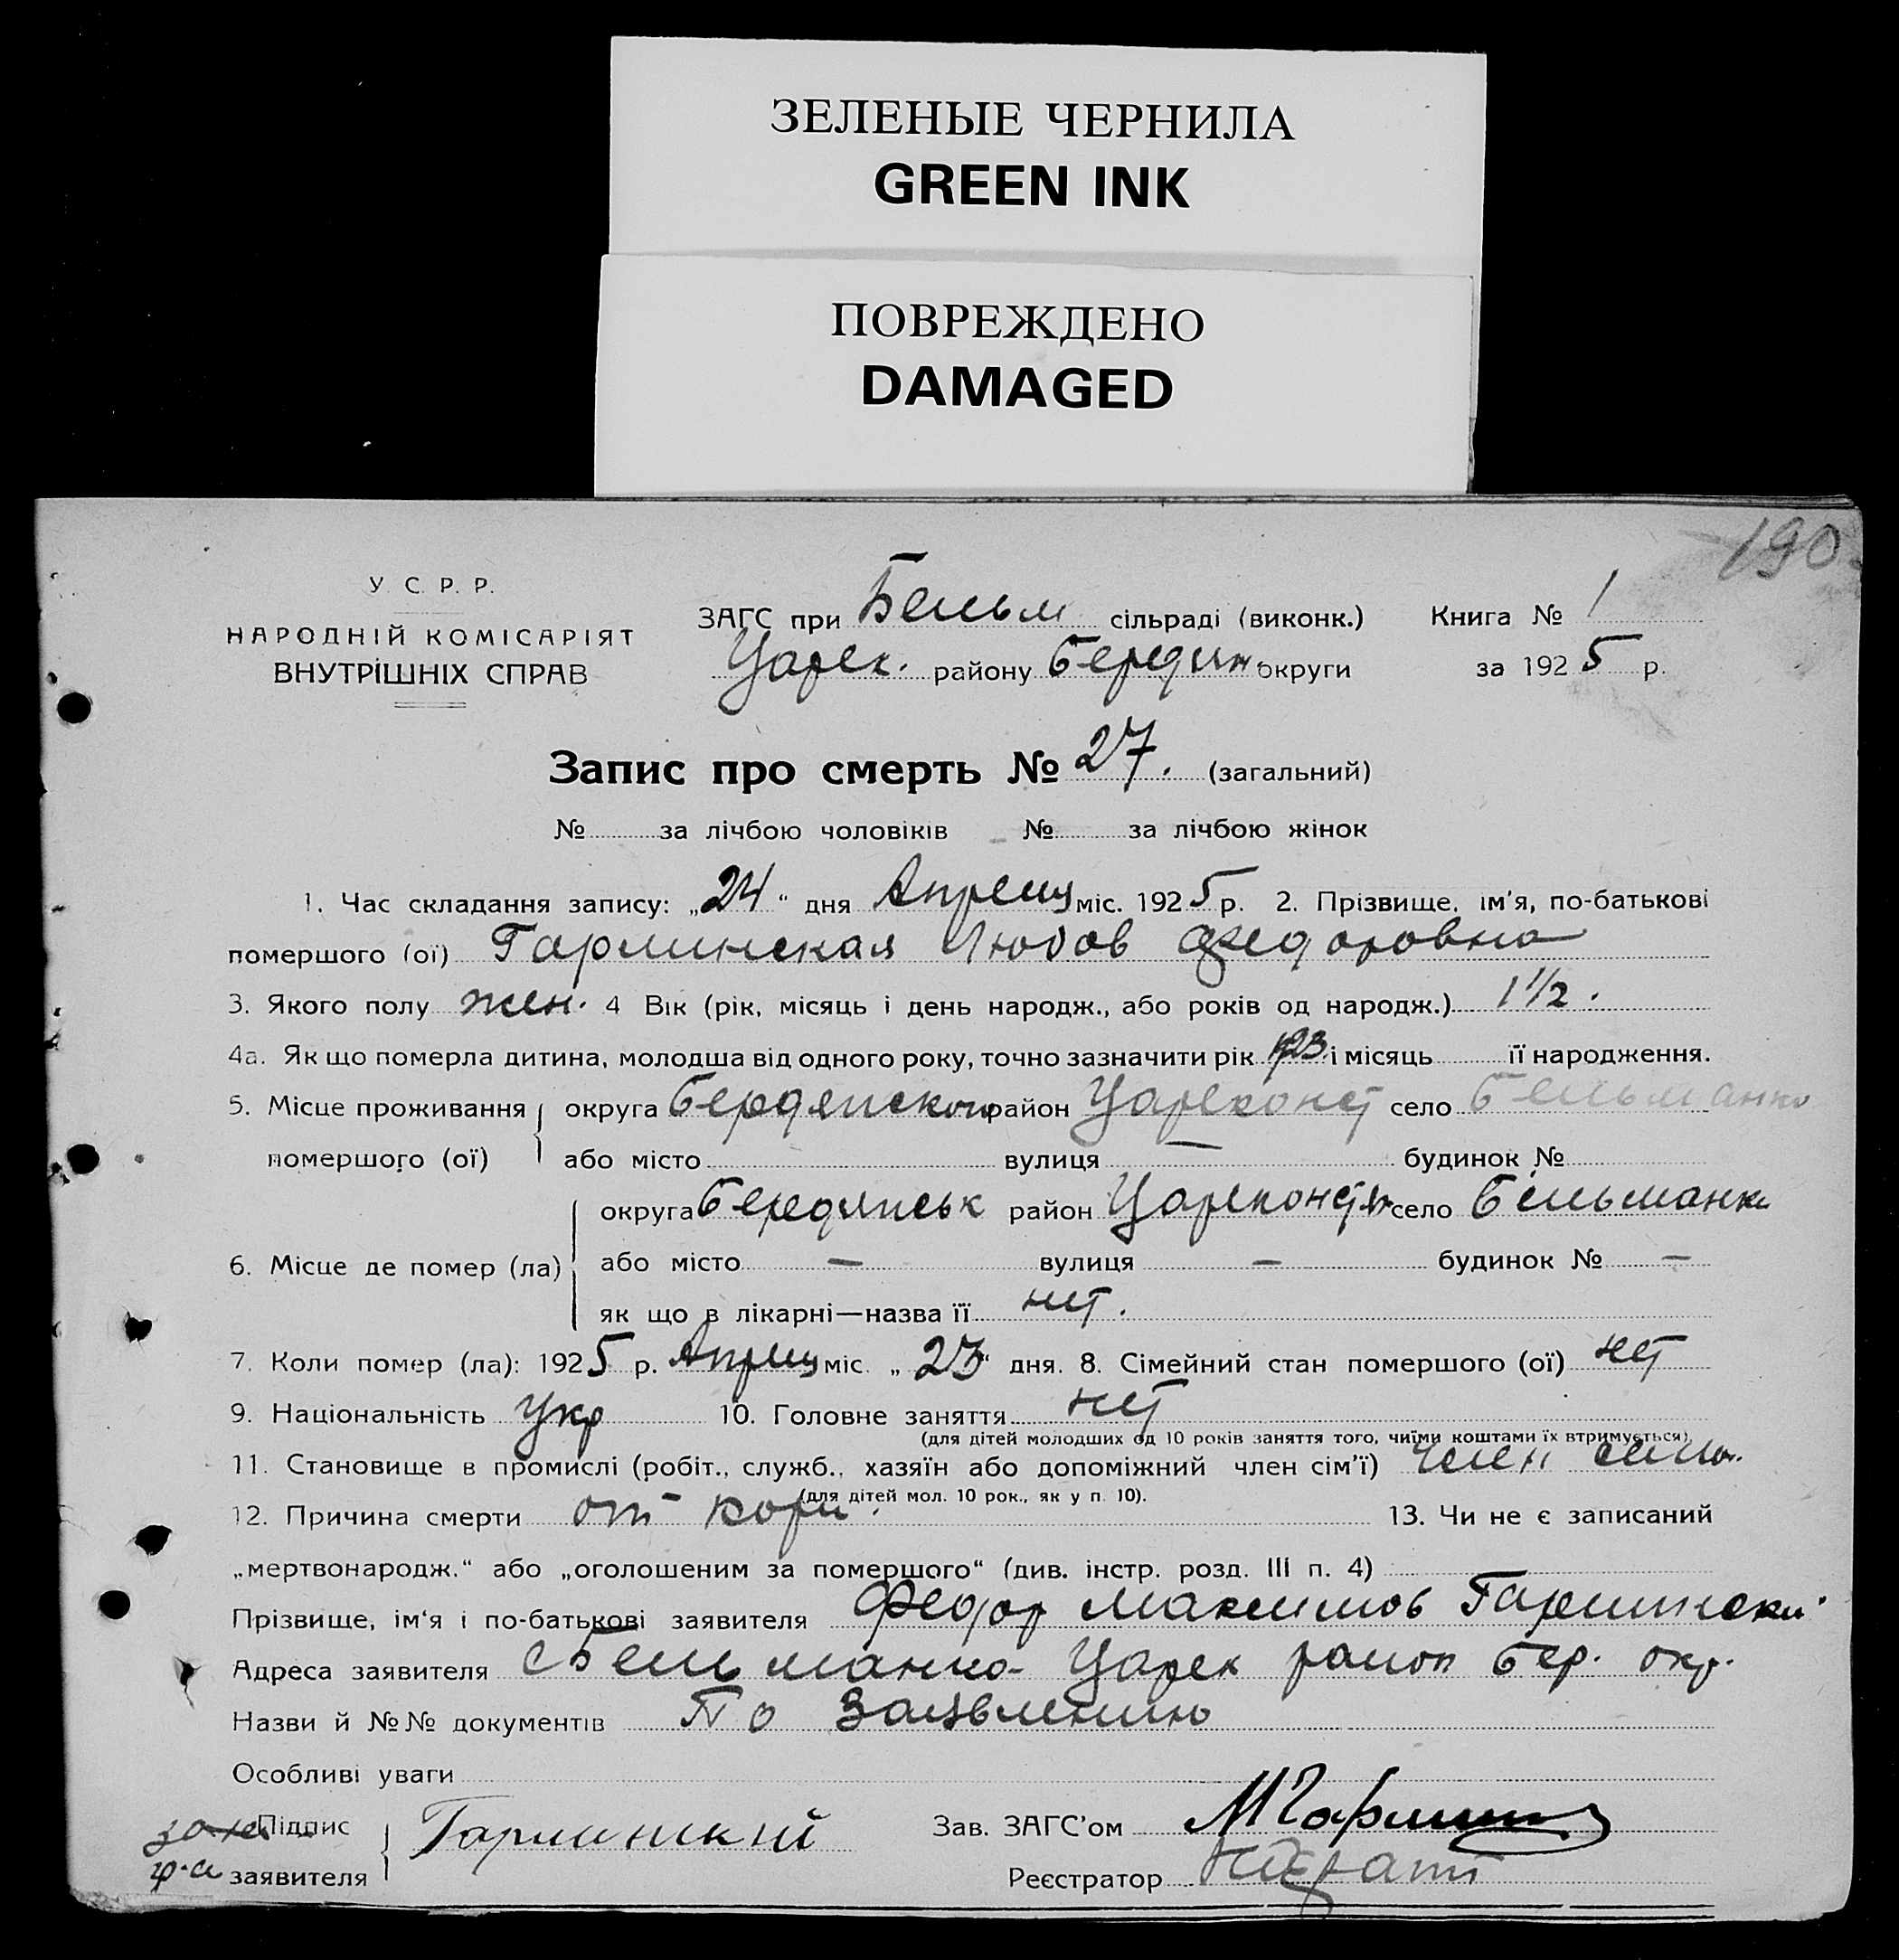 ЗЕЛЕНЫЕ ЧЕРНИЛА
GREEN INK
ПОВРЕЖДЕНО
DAMAGED
190
У. С. Р. Р.
НАРОДНІЙ КОМІСАРІЯТ
ВНУТРІШНІХ СПРАВ
ЗАГС при Бельм сільраді (виконк.) Книга № 1
Царек. району Бердян. округи за 1925 р.
Запис про смерть № 27. (загальний)
№ за лічбою чоловіків № за лічбою жінок
1. Час складання запису: „24“ дня Апреля міс. 1925 р. 2. Прізвище, ім'я, по-батькові
помершого (ої) Гарминская Любов Федоровна
3. Якого полу жен. 4 Вік (рік, місяць і день народж., або років од народж.) 1 1/2.
4а. Як що померла дитина, молодша від одного року, точно зазначити рік 923 і місяць її народження.
5. Місце проживання округа Бердянского район Цареконст село Бельманка
помершого (ої) або місто вулиця — будинок №
округа Бердянськ район Цареконст село Бельманка
6. Місце де помер (ла) або місто — вулиця — будинок № —
як що в лікарні—назва її нет.
7. Коли помер (ла): 1925 р. Апреля міс. „23“ дня. 8. Сімейний стан помершого (ої) нет
9. Національність Укр 10. Головне заняття нет
(для дітей молодших од 10 років заняття того, чиїми коштами їх втримується)
11. Становище в промислі (робіт., служб., хазяїн або допоміжний член сім'ї) член семьи.
(для дітей мол. 10 рок., як у п. 10).
12. Причина смерти от кори. 13. Чи не є записаний
„мертвонародж.“ або „оголошеним за помершого“ (див. інстр. розд. III п. 4)
Прізвище, ім'я і по-батькові заявителя Федор Максимов Гармински
Адреса заявителя с Бельманка Царек район Бер. окр.
Назви й №№ документів По Заявлению
Особливі уваги
Підпис Гарминский Зав. ЗАГС'ом
заявителя Реєстратор